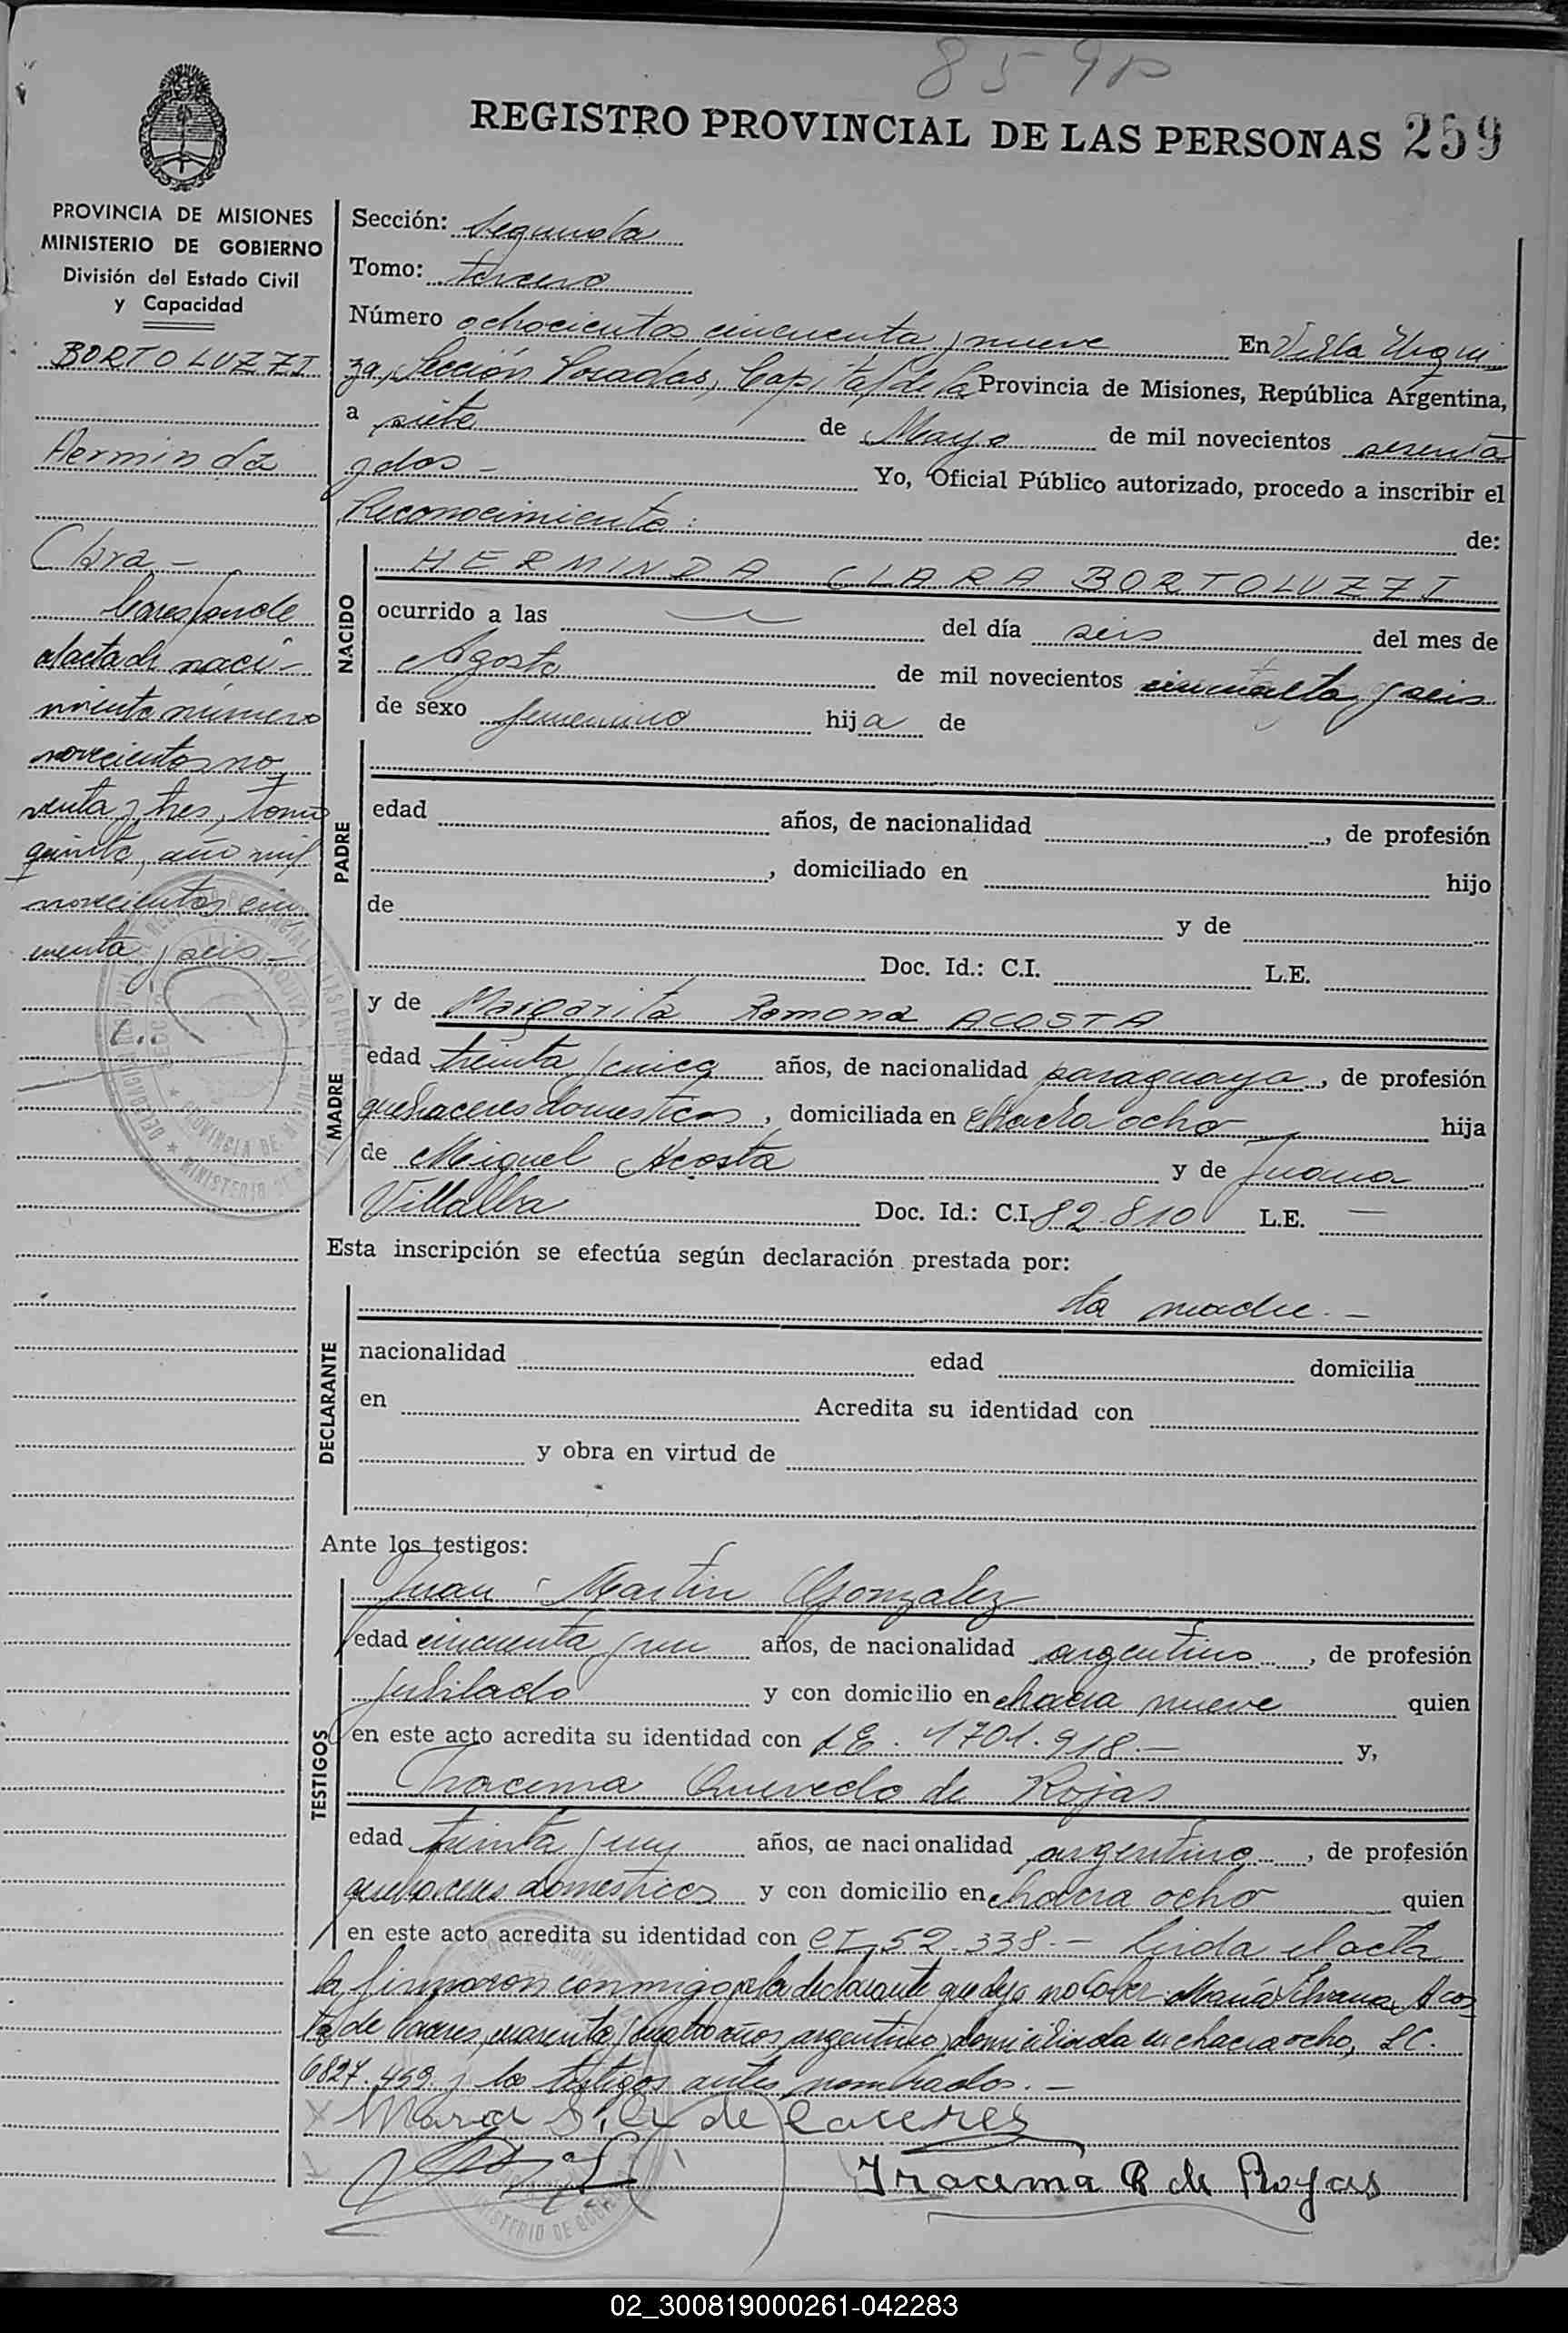 859
REGISTRO PROVINCIAL DE LAS PERSONAS 259
PROVINCIA DE MISIONES
MINISTERIO DE GOBIERNO
División del Estado Civil
y Capacidad
BORTOLUZZI
Herminda
Clara -
Corresponde
al acta de naci-
miento número
novecientos no
venta y tres, tomo
quinto, año mil
novecientos cin
cuenta y seis -
Sección: Segunda
Tomo: tercero
Número ochocientos cincuenta y nueve En Villa Urqui
za, Sección Posadas, Capital de la Provincia de Misiones, República Argentina,
a siete de Mayo de mil novecientos sesenta
y dos - Yo, Oficial Público autorizado, procedo a inscribir el
Reconocimiento: de:
NACIDO
HERMINDA CLARA BORTOLUZZI
ocurrido a las del día seis del mes de
Agosto de mil novecientos cincuenta y seis
de sexo femenino hija de
PADRE
edad años, de nacionalidad , de profesión
, domiciliado en hijo
de y de
Doc. Id.: C.I. L.E.
MADRE
y de Margarita Ramona ACOSTA
edad treinta y cinco años, de nacionalidad paraguaya, de profesión
quehaceres domesticos, domiciliada en chacra ocho hija
de Miguel Acosta y de Juana
Villalba Doc. Id.: C.I. 82.810 L.E. —
Esta inscripción se efectúa según declaración prestada por:
DECLARANTE
la madre. -
nacionalidad edad domicilia
en Acredita su identidad con
y obra en virtud de
Ante los testigos:
TESTIGOS
Juan Martin Gonzalez
edad cincuenta y un años, de nacionalidad argentino, de profesión
jubilado y con domicilio en chacra nueve quien
en este acto acredita su identidad con LE. 1701.918.- y,
Iracema Quevedo de Rojas
edad treinta y un años, de nacionalidad argentina, de profesión
quehaceres domesticos y con domicilio en chacra ocho quien
en este acto acredita su identidad con CI. 52.338.- Leida el acta
la firmaron conmigo por la declarante que dijo no saber María Silvana Acos
ta de Caceres, cuarenta y cuatro años, argentina, domiciliada en chacra ocho, LC.
6827.459. y los testigos antes nombrados. -
Maria S. de Caceres
Iracema Q de Rojas
02_300819000261-042283